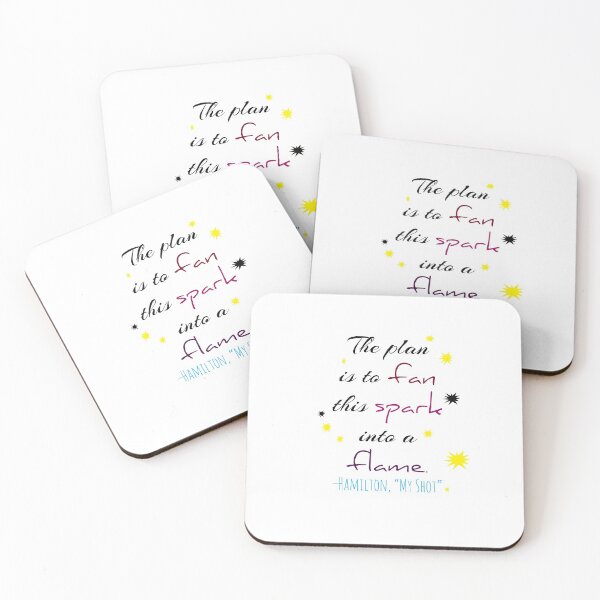 The plan
is to fan
this spark
The plan
is to fan
this spark
into a
flame
The plan
is to fan
this spark
into a
flame.
-Hamilton, "My S
The plan
is to fan
this spark
into a
flame.
-Hamilton, "My Shot"